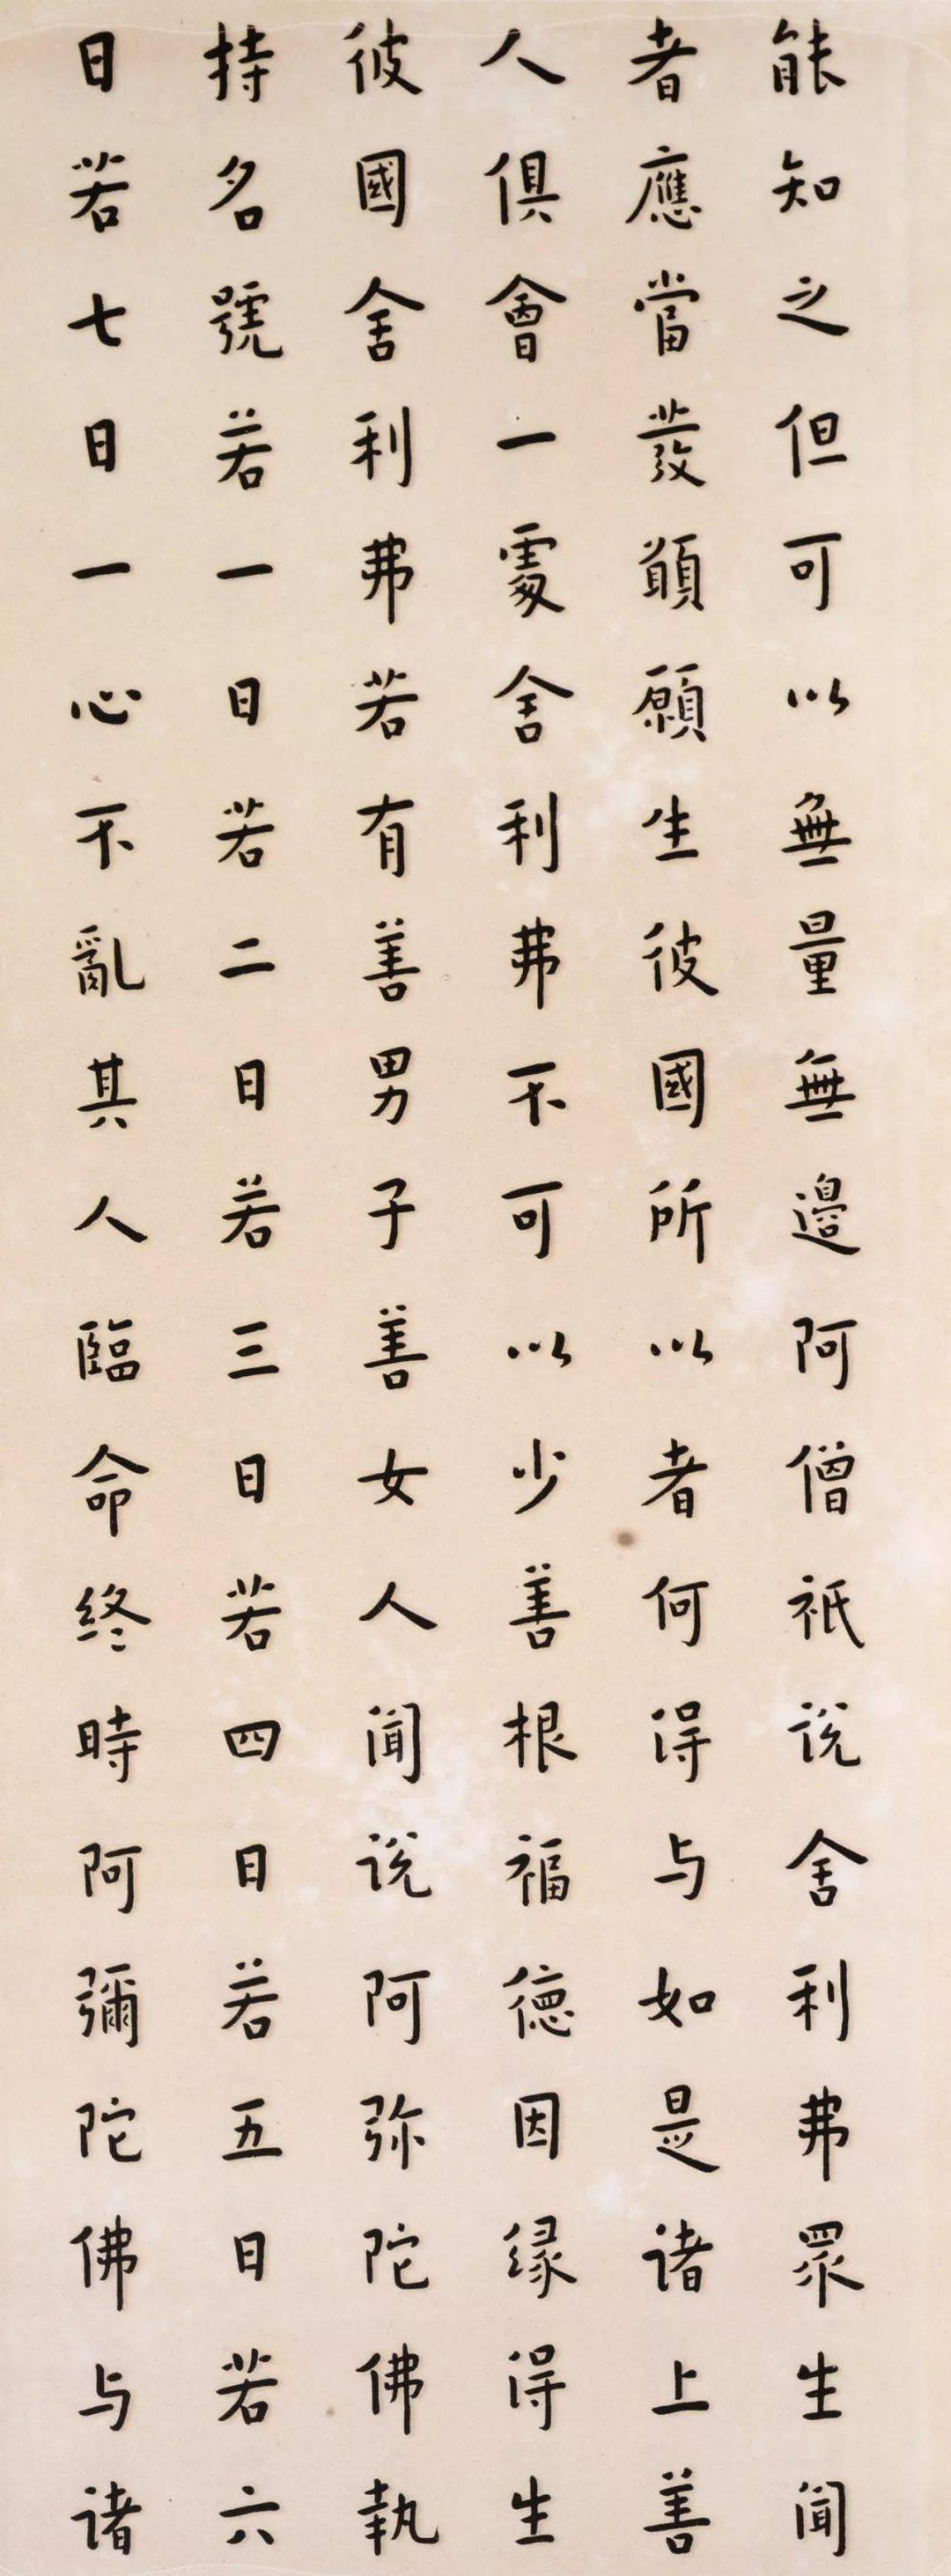 能知之但可以無量無邊阿僧祇说舍利弗眾生闻
者應當發願願生彼國所以者何得与如是诸上善
人俱會一處舍利弗不可以少善根福德因缘得生
彼國舍利弗若有善男子善女人闻说阿弥陀佛執
持名號若一日若二日若三日若四日若五日若六
日若七日一心不亂其人臨命终時阿彌陀佛与诸